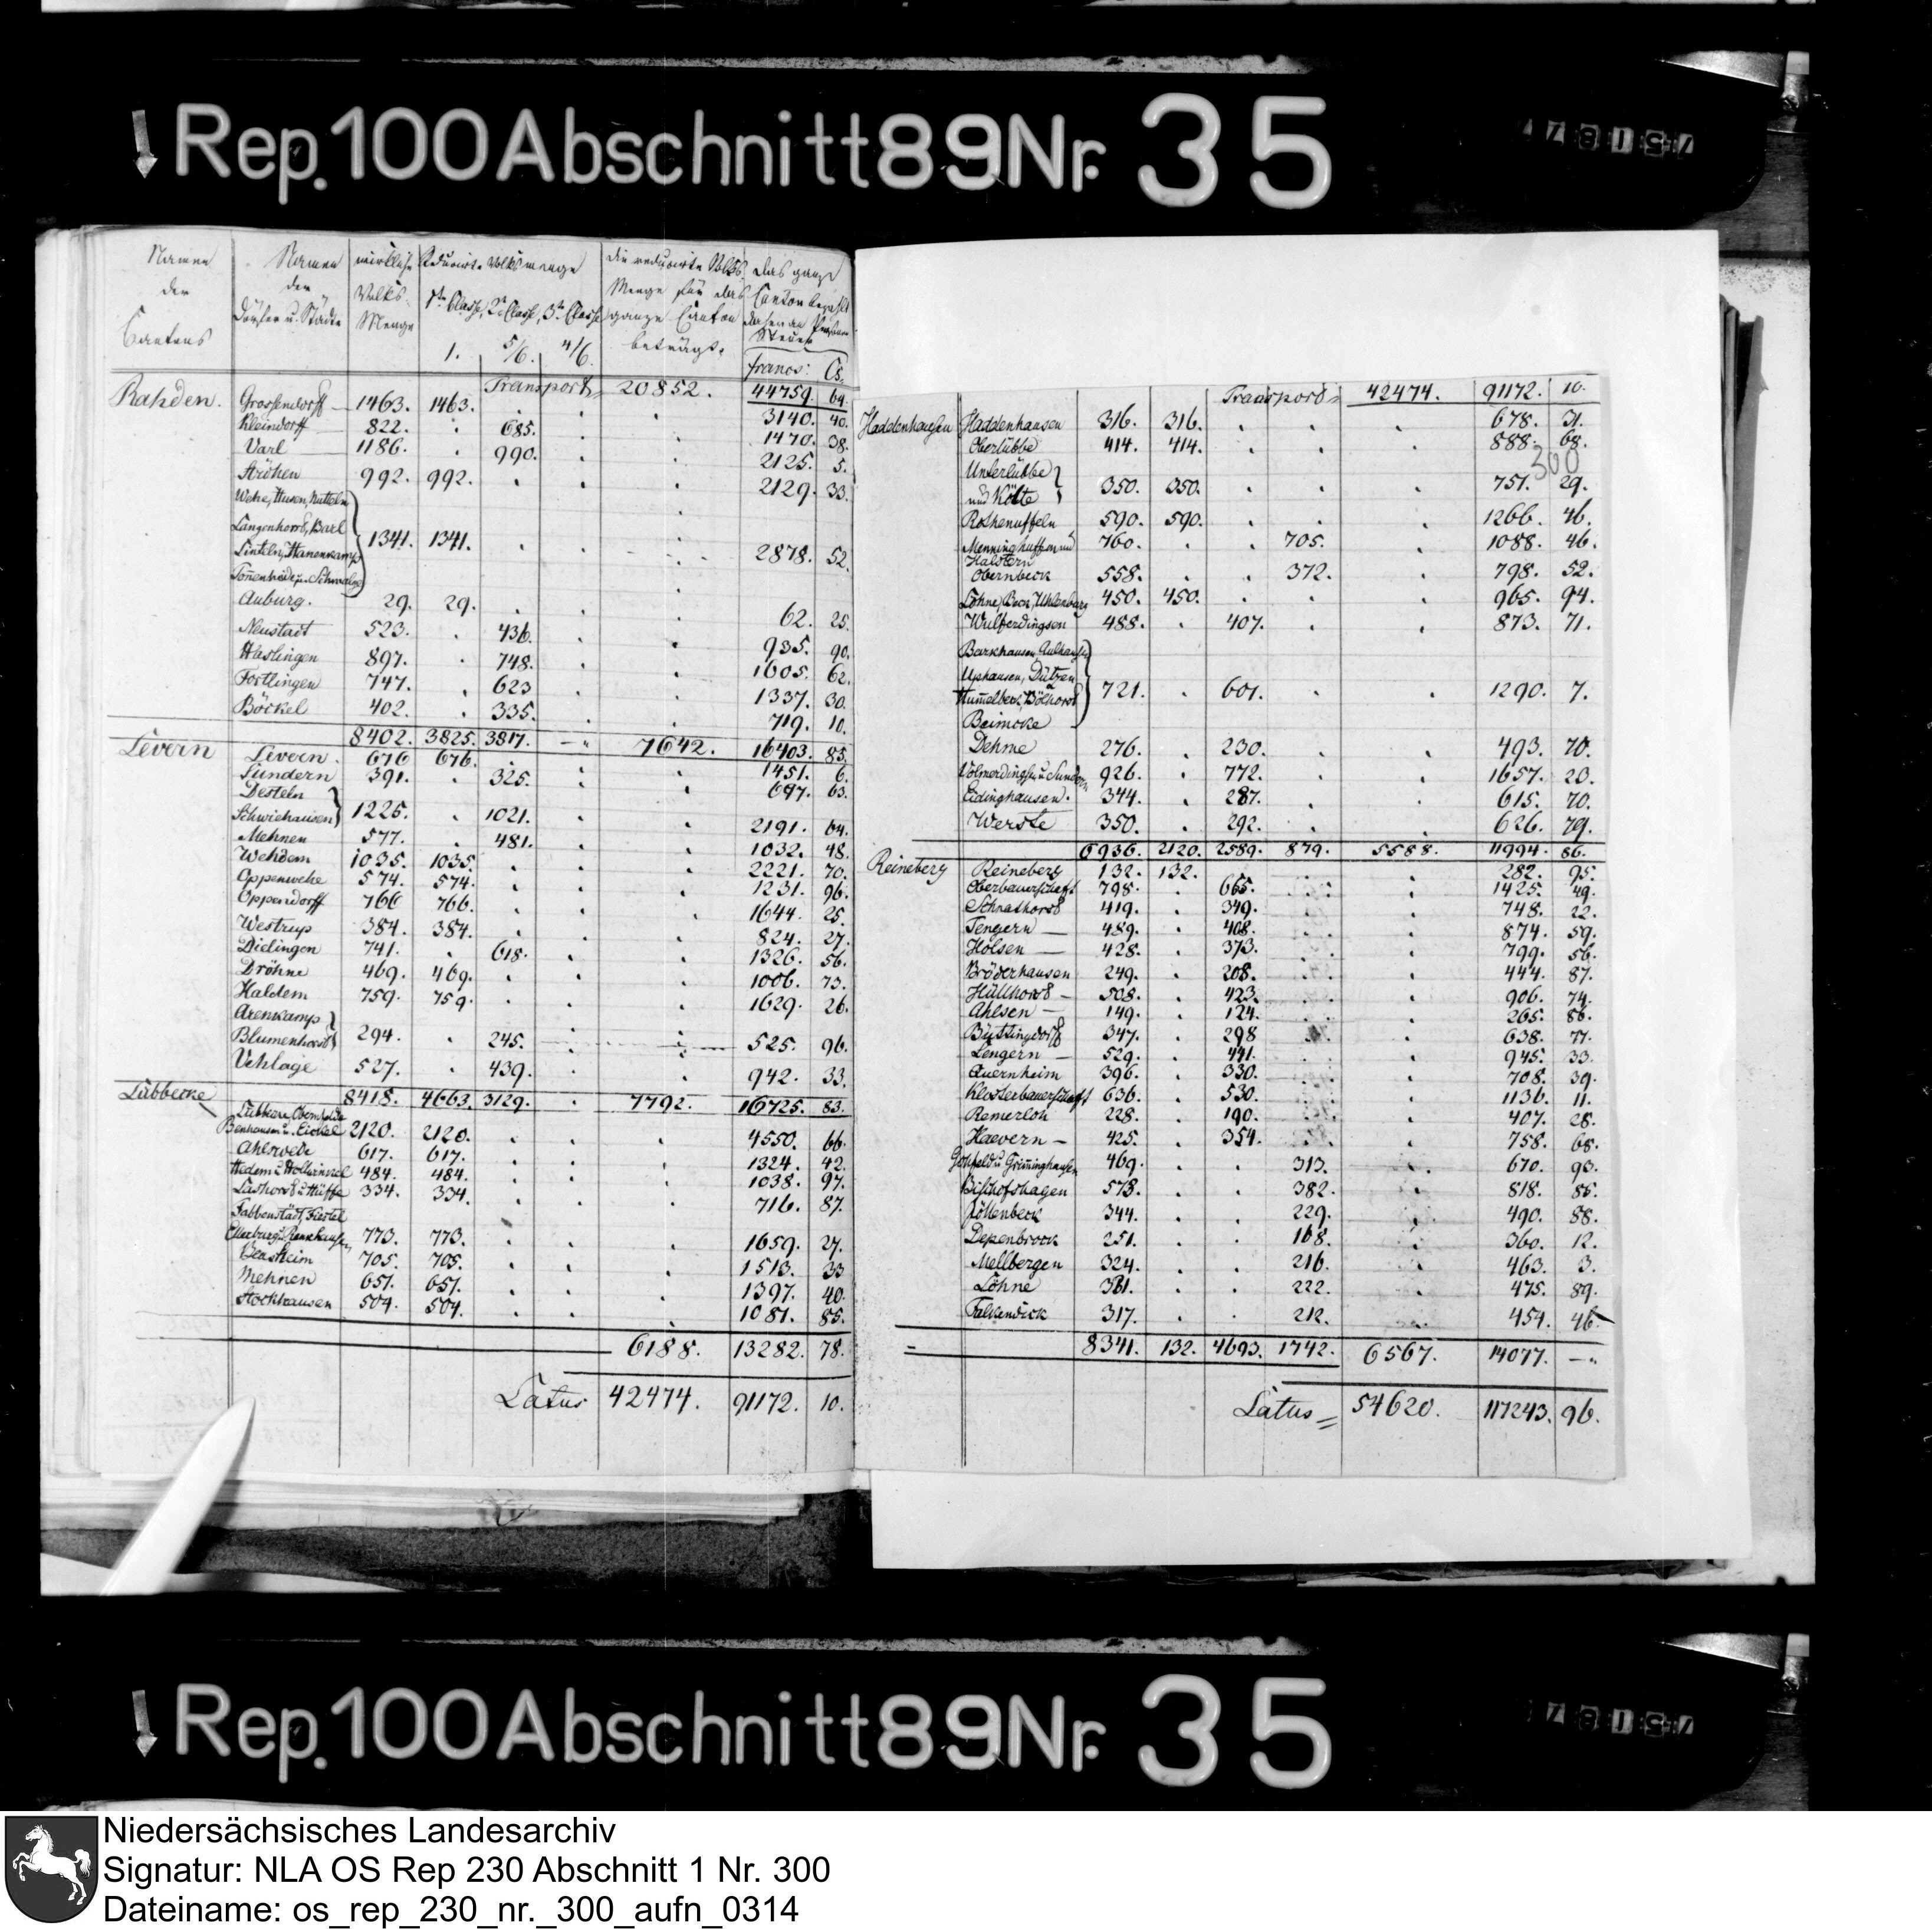 Rep. 100 Abschnitt 89 Nr. 35
Namen der Cantons | Namen der Dörfer u. Städte | wirkliche Volks-Menge | Reducirte Volksmenge 1te Classe, 2te Classe, 3te Classe 1. 5/6. 4/6. | die reducirte Volks-Menge für das ganze Canton beträgt. | das ganze Canton bezahlt daher an Personen Steuer francs: Cs.
Transport 20852. 44759. 64.
Rahden. Grossendorff 1463. 1463. 3140. 40.
Kleindorff 822. 685. 1470. 38.
Varl 1186. 990. 2125. 5.
Ströhen 992. 992. 2129. 33.
Wehe, Husen, Nutteln
Langenhorst, Barl
Linteln, Hanenkamp 1341. 1341. 2878. 52.
Tonnenheide u. Schmalge
Auburg. 29. 29. 62. 25.
Neustadt 523. 436. 935. 90.
Haslingen 897. 748. 1605. 62.
Fostlingen 747. 623 1337. 30.
Böckel 402. 335. 719. 10.
8402. 3825. 3817. 7642. 16403. 85.
Levern Levern. 676 676. 1451. 6.
Sundern 391. 325. 697. 63.
Desteln
Schwiehausen 1225. 1021. 2191. 64.
Mehnen 577. 481. 1032. 48.
Wehdem 1035. 1035. 2221. 70.
Oppenwehe 574. 574. 1231. 96.
Oppendorff 766 766. 1644. 25
Westrup 384. 384. 824. 27.
Dielingen 741. 618. 1326. 56.
Dröhne 469. 469. 1006. 73.
Haldem 759. 759. 1629. 26.
Arenkamp
Blumenhorst 294. 245. 525. 96.
Vehlage 527. 439. 942. 33.
8418. 4663. 3129. 7792. 16725. 83.
Lübbecke Lübbecke
Benhausen u. Eickel 2120. 2120. 4550. 66
Ahlswede 617. 617. 1324. 42.
Hedem u Hollwinkel 484. 484. 1038. 97.
Lashorst u Hüffe 334. 334. 716. 87.
Fabbenstädt, Fiestel
Ellerburg 773. 773. 1659. 27.
705. 705. 1513. 33
Mehnen 651. 651. 1397. 40.
Stockhausen 504. 504. 1081. 85.
6188. 13282. 78.
Latus 42474. 91172. 10.
Transport 42474. 91172. 10.
Haddenhausen Haddenhausen 316. 316. 678. 31.
Oberlübbe 414. 414. 888. 68.
300
Unterlübbe
und Kötte 350. 350. 751. 29.
Rothenuffeln 590. 590. 1266. 46.
Menninghuffen und 760. 705. 1088. 46.
Halstern
Obernbeck 558. 372. 798. 52.
Löhne, Beck, Uhlenburg 450. 450. 965. 94.
Wulferdingsen 488. 407. 873. 71.
Barkhausen Aulhausen
Uphausen, Dützen
Hummelbeck, Bölhorst 721. 601. 1290. 7.
Beimoke
Dehme 276. 230. 493. 70.
Volmerdingsen u Sundern 926. 772. 1657. 20.
Eidinghausen. 344. 287. 615. 70.
Werste 350. 292. 626. 79.
6936. 2120. 2589. 879. 5588. 11994. 86.
Reineberg Reineberg 132. 132. 282. 95.
Oberbauerschaft 798. 665. 1425. 49.
Schnathorst 419. 349. 748. 22.
Tengern 489. 408. 874. 59.
Holsen 428. 373. 799. 56.
Bröderhausen 249. 208. 444. 87.
Hüllhorst 508. 423. 906. 74.
Ahlsen 149. 124. 265. 86.
Büttingdorff 347. 298 638. 77.
Lengern 529. 441. 945. 33.
Quernheim 396. 330. 708. 39.
Klosterbauerschaft 636. 530. 1136. 11.
Remerloh 228. 190. 407. 28.
Haevern 425. 354. 758. 68.
Gohfeld u Grimminghausen 469. 313. 670. 93.
Bischofshagen 573. 382. 818. 85.
Jöllenbeck 344. 229. 490. 88.
Depenbrock 251. 168. 360. 12.
Mellbergen 324. 216. 463. 3.
Löhne 331. 222. 475. 89.
Falkendick 317. 212. 454. 46.
8341. 132. 4693. 1742. 6567. 14077.
Latus 54620. 117243. 96.
Rep. 100 Abschnitt 89 Nr. 35
Niedersächsisches Landesarchiv
Signatur: NLA OS Rep 230 Abschnitt 1 Nr. 300
Dateiname: os_rep_230_nr._300_aufn_0314